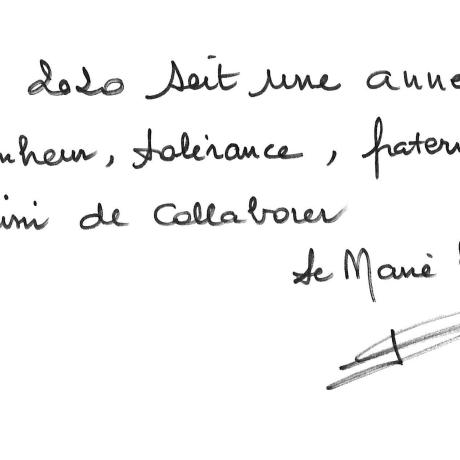 2020 seit une anne
nheur, tolérance, fratern
ini de Collaborer
Le Marié